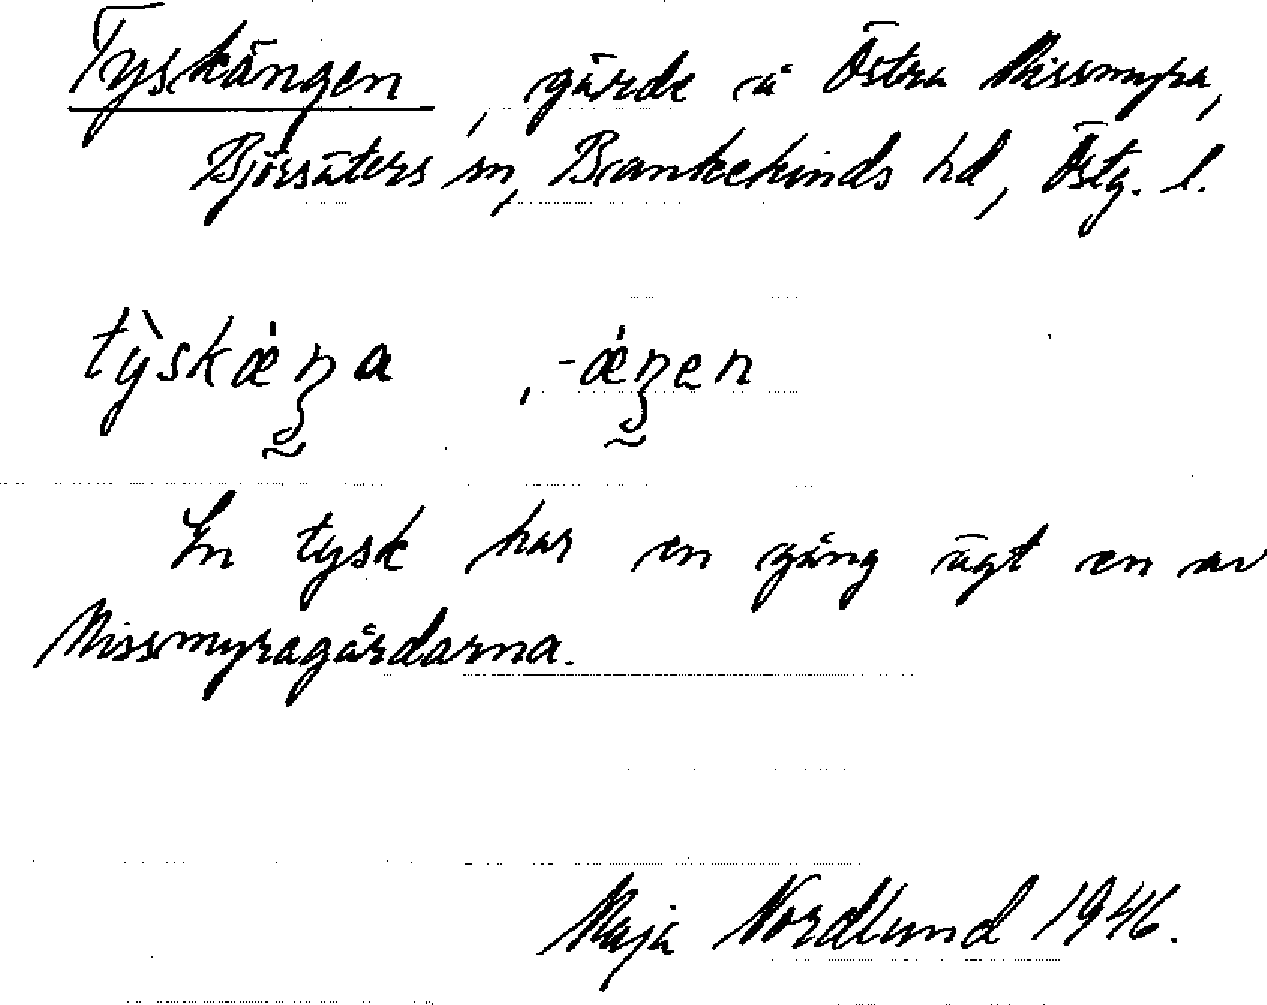 Tyskängen, gärde å Östra Missmyra,
Björsäters sn, Bankekinds hd, Östg. l.
tỳskǽŋa, -ǽŋen
En tysk har en gång ägt en av
Missmyragårdarna.
Maja Nordlund 1946.